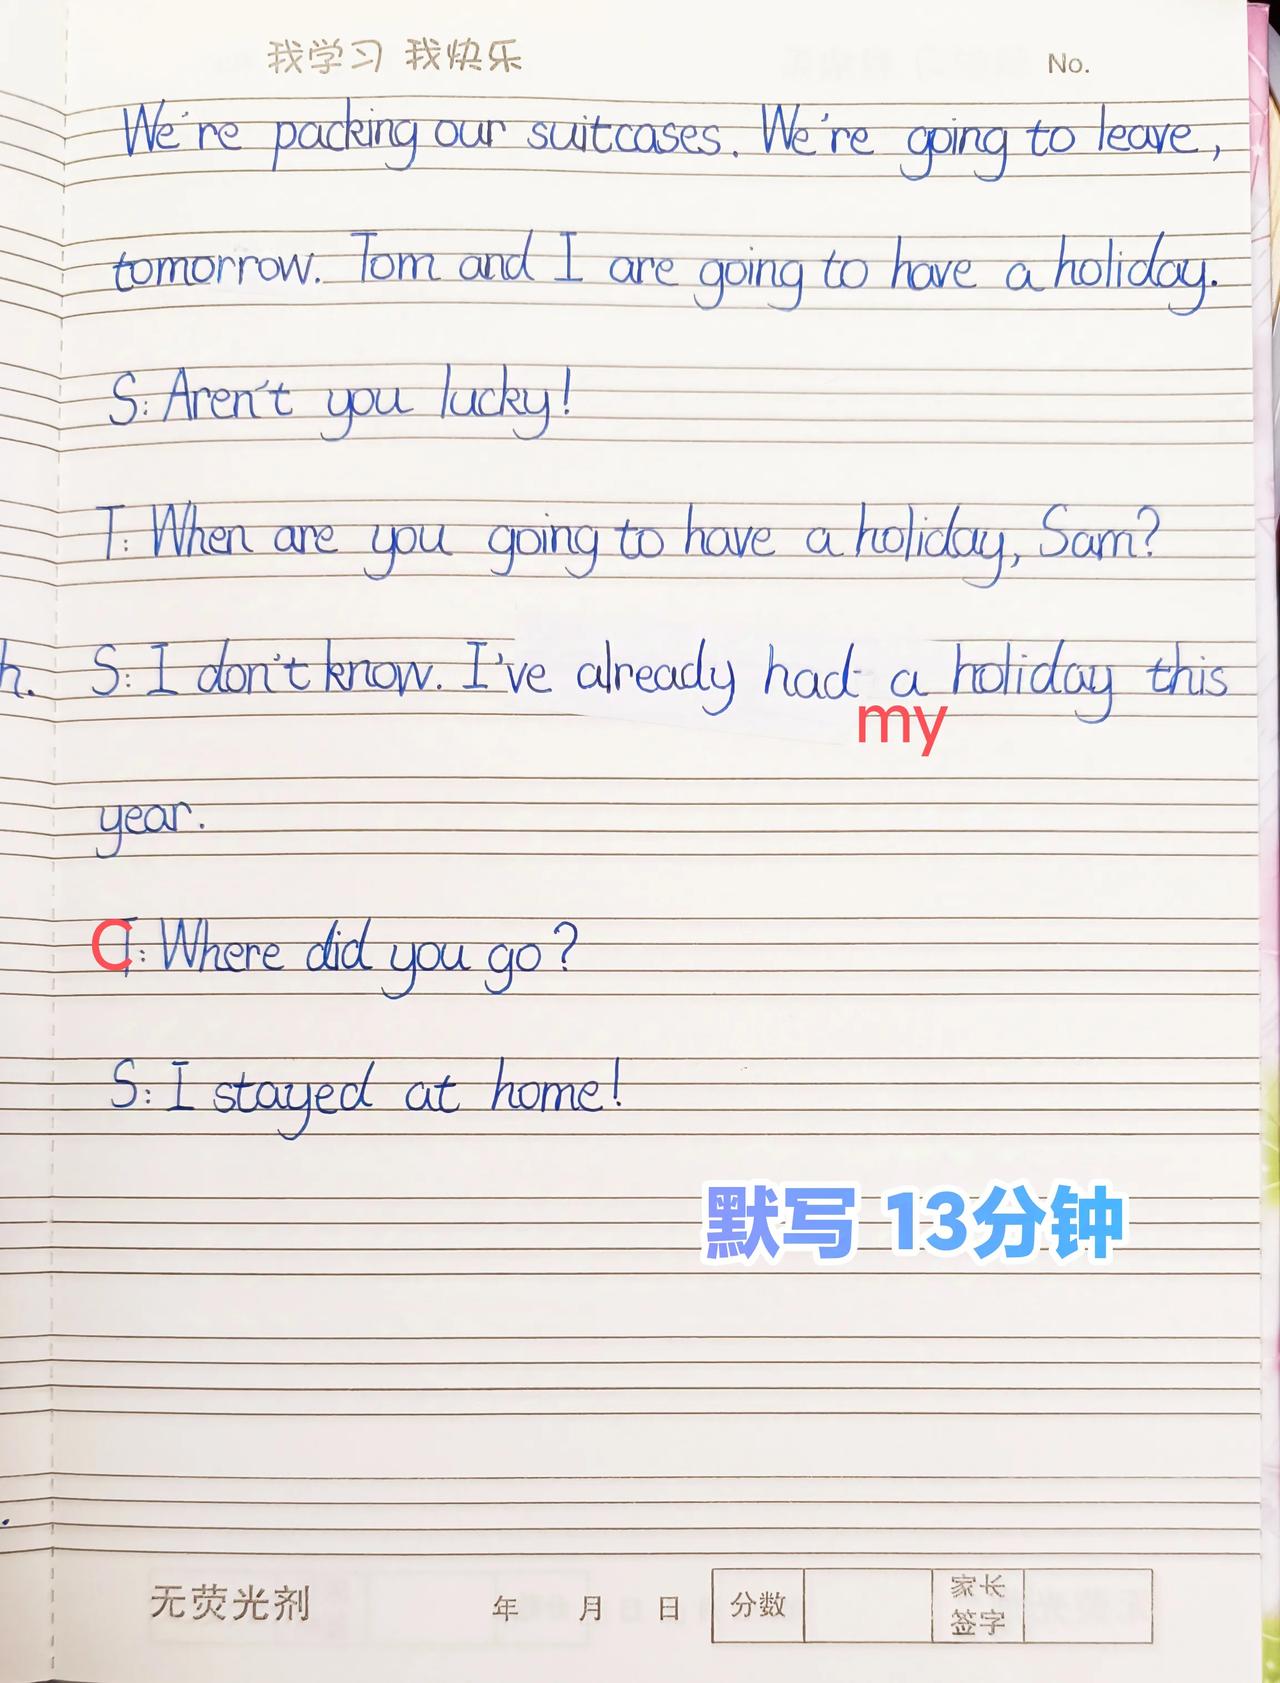 我学习 我快乐 No.
We're packing our suitcases. We're going to leave,
tomorrow. Tom and I are going to have a holiday.
S: Aren't you lucky!
T: When are you going to have a holiday, Sam?
h. S: I don't know. I've already had a holiday this
my
year.
C T: Where did you go?
S: I stayed at home!
默写 13分钟
无荧光剂 年 月 日 分数 家长签字